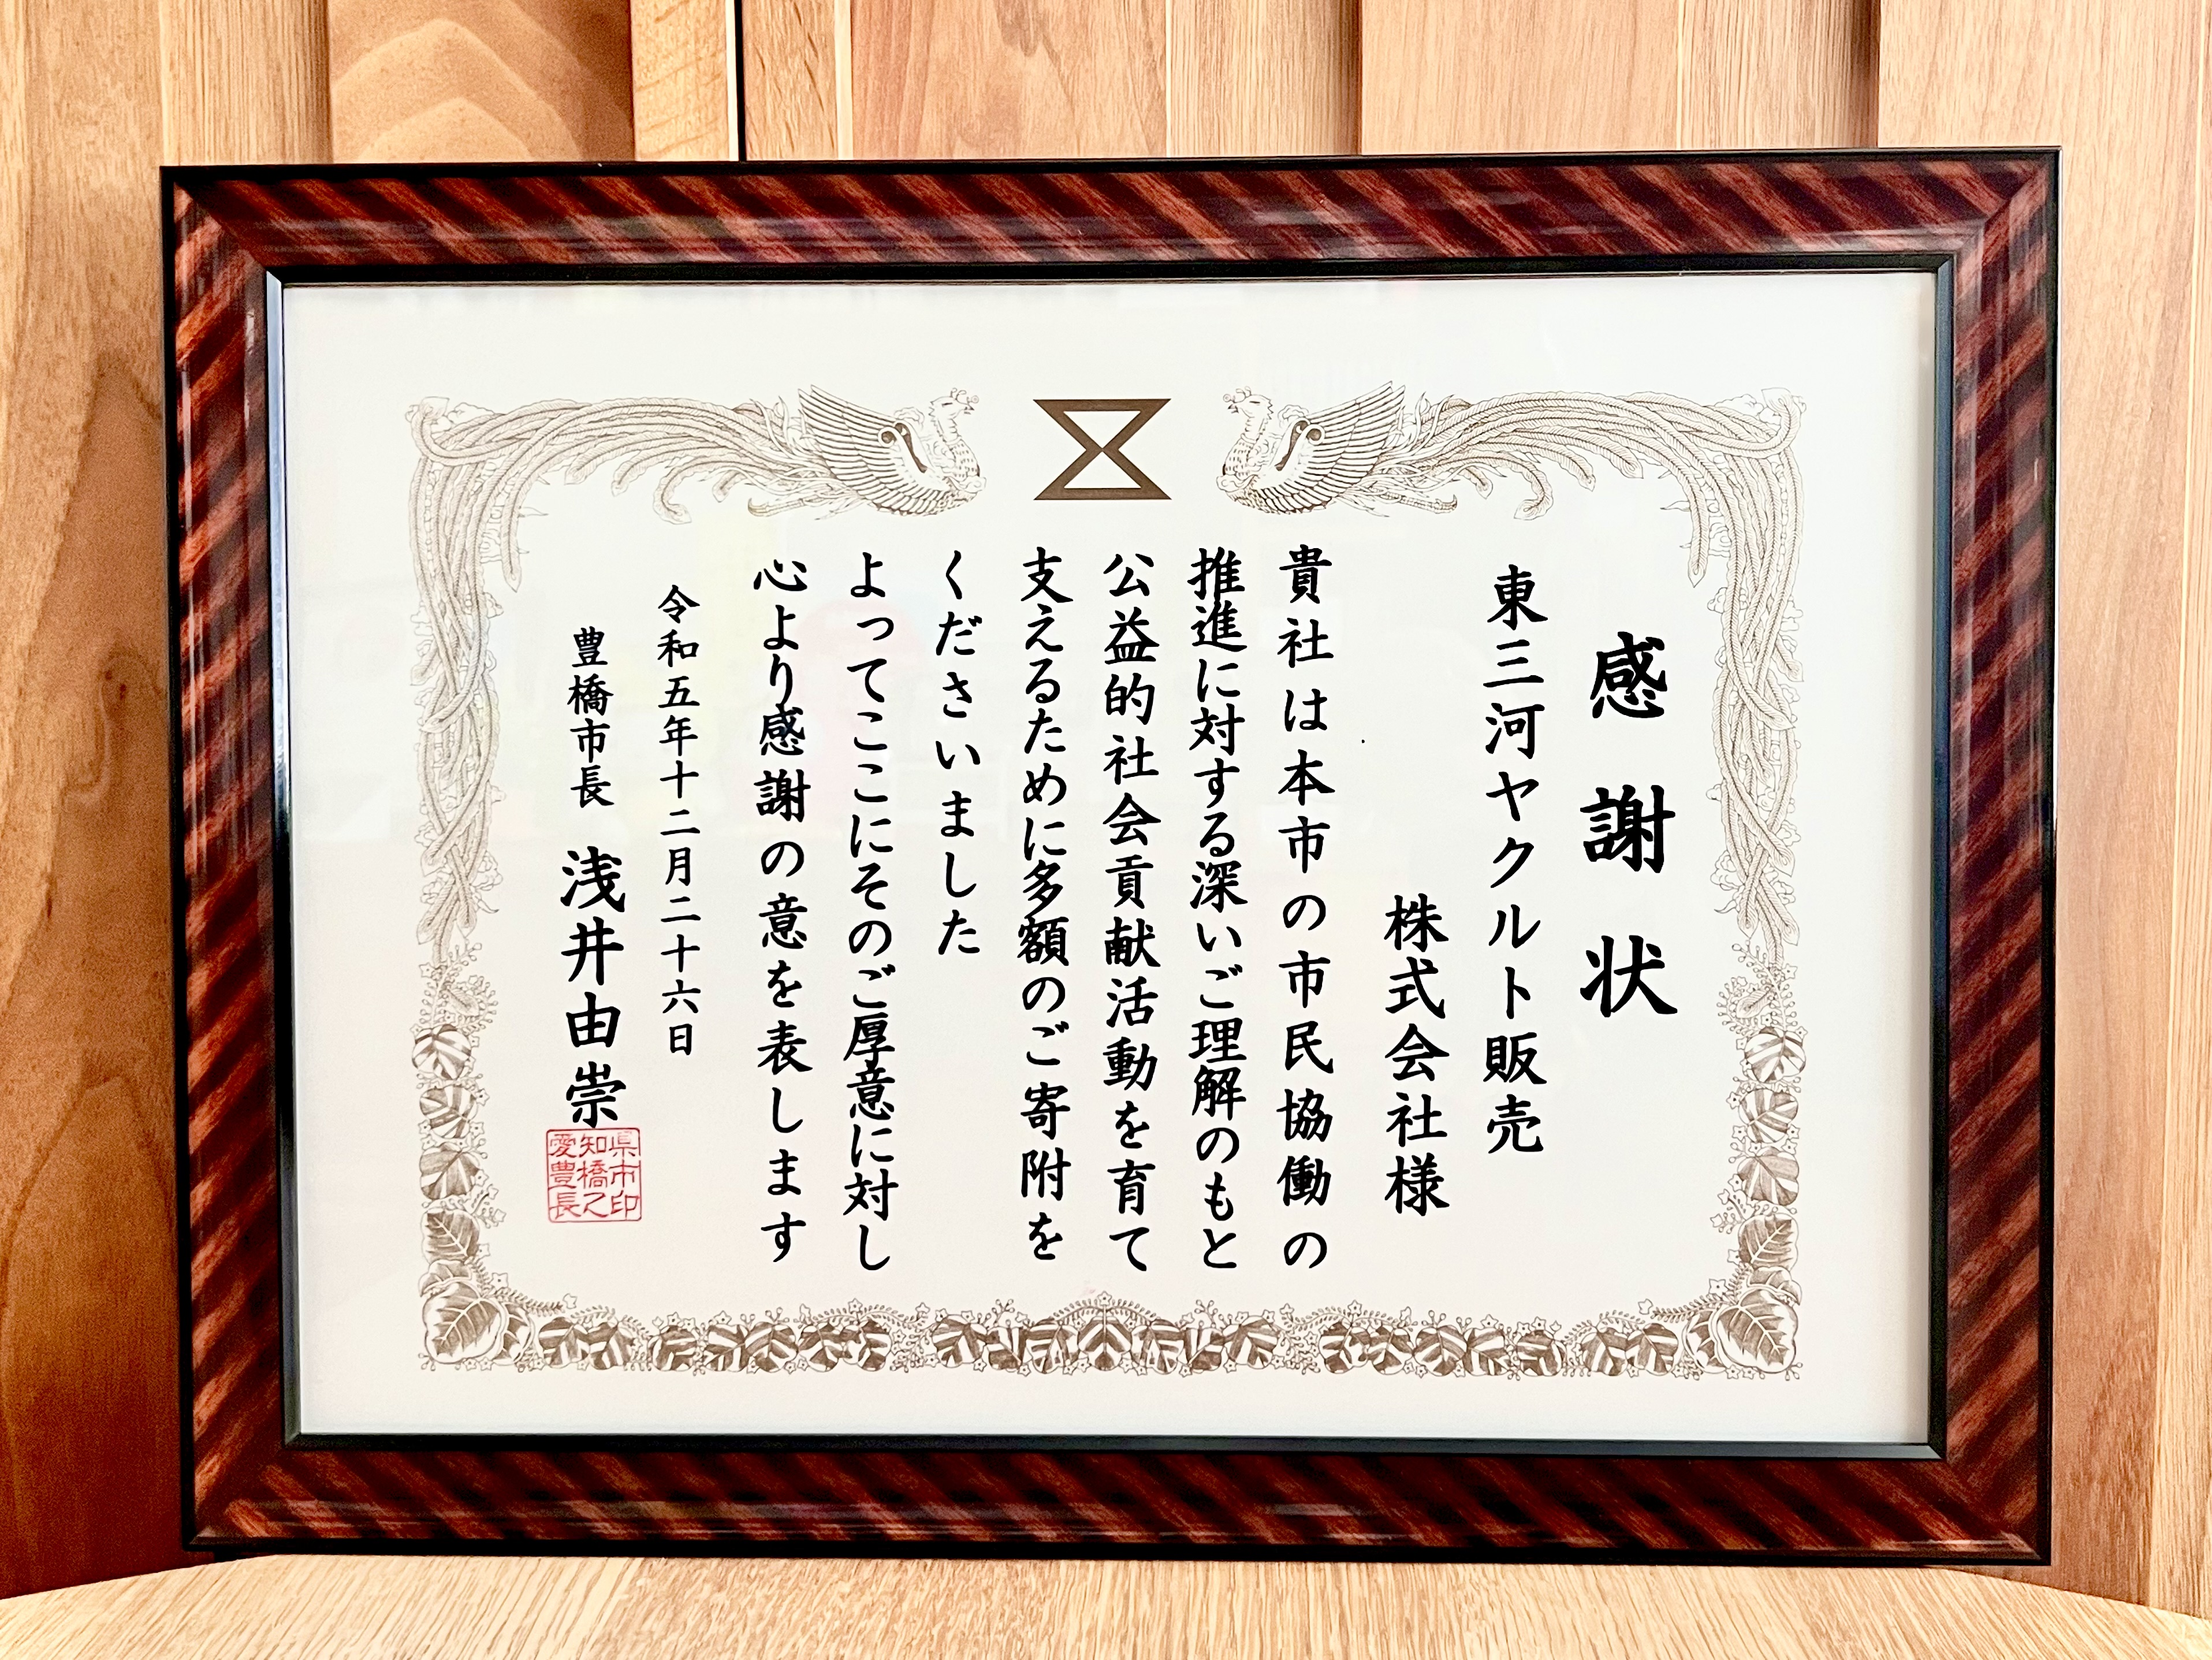 感謝状
東三河ヤクルト販売
株式会社様
貴社は本市の市民協働の
推進に対する深いご理解のもと
公益的社会貢献活動を育て
支えるために多額のご寄附を
くださいました
よってここにそのご厚意に対し
心より感謝の意を表します
令和五年十二月二十六日
豊橋市長 浅井由崇
愛知県
豊橋市
長之印